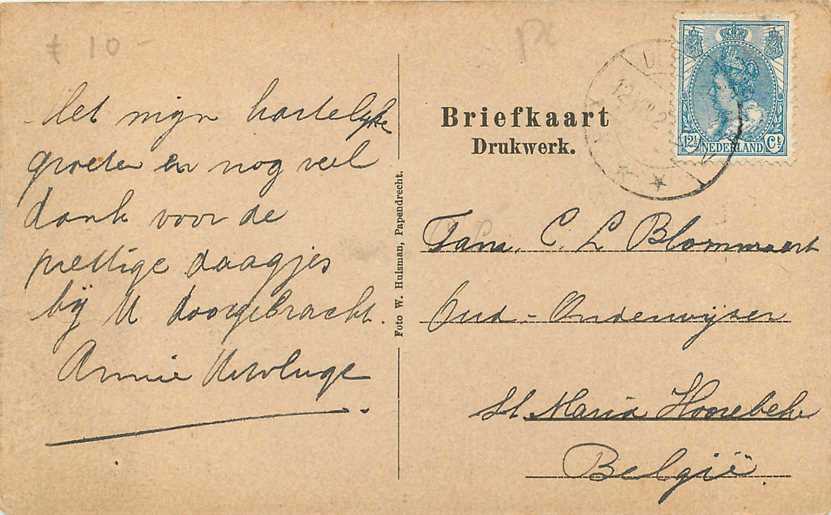 £ 10 -
Met mijn hartelyke
groeten en nog veel
dank voor de
prettige daagjes
bij U doorgebracht.
Annie
Foto W. Huisman, Papendrecht.
Briefkaart
Drukwerk.
12½ NEDERLAND Ct
Fam. C. L Blommaert
Oud-Onderwijzer
St Maria Hoorebeke
België.